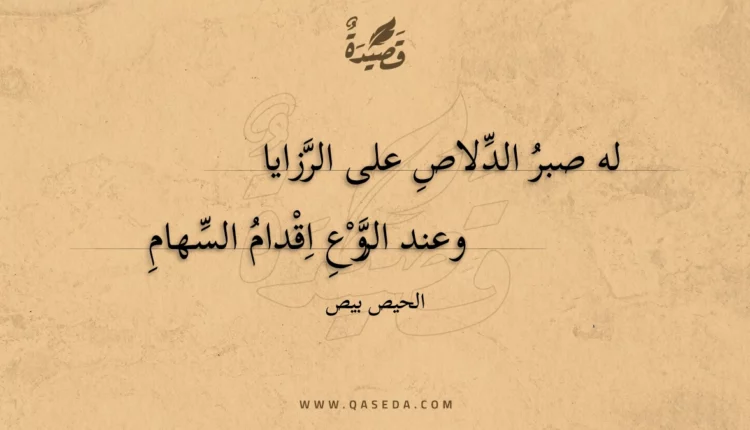 قَصِيْدَةٌ
له صبرُ الدِّلاصِ على الرَّزايا
وعند الرَّوْعِ اِقْدامُ السِّهامِ
الحيص بيص
WWW.QASEDA.COM